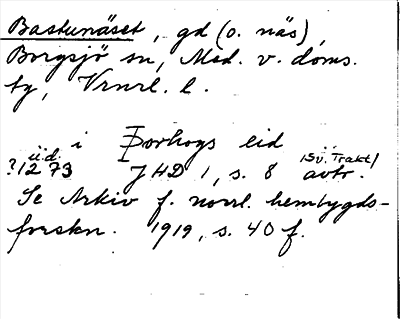 Bastunäset, gd (o. näs),
Borgsjö sn, Med. v. doms.
ty, Vrnrl. l.
i Þorhogs eid
?1273 u.d. JHD 1, s. 8 avtr. (Sv. Trakt)
Se Arkiv f. norrl. hembygds-
forskn. 1919, s. 40 f.